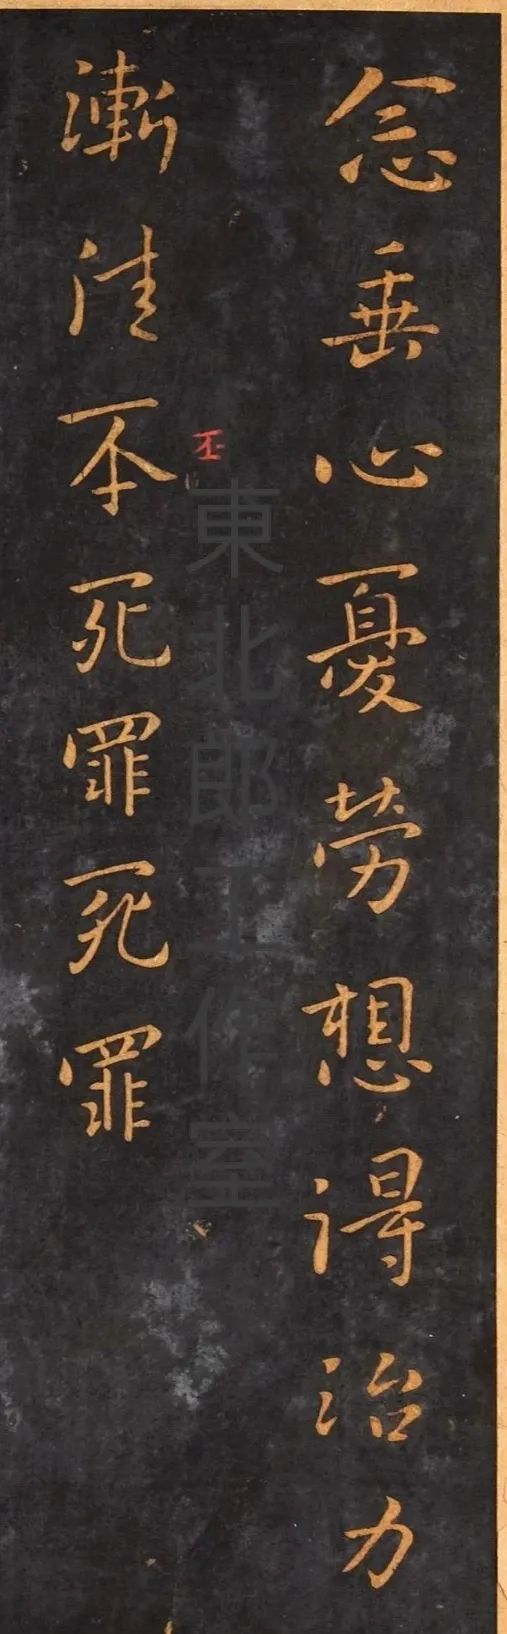 念垂心憂勞想得治力
漸佳不死罪死罪
丕
東北郎工作室